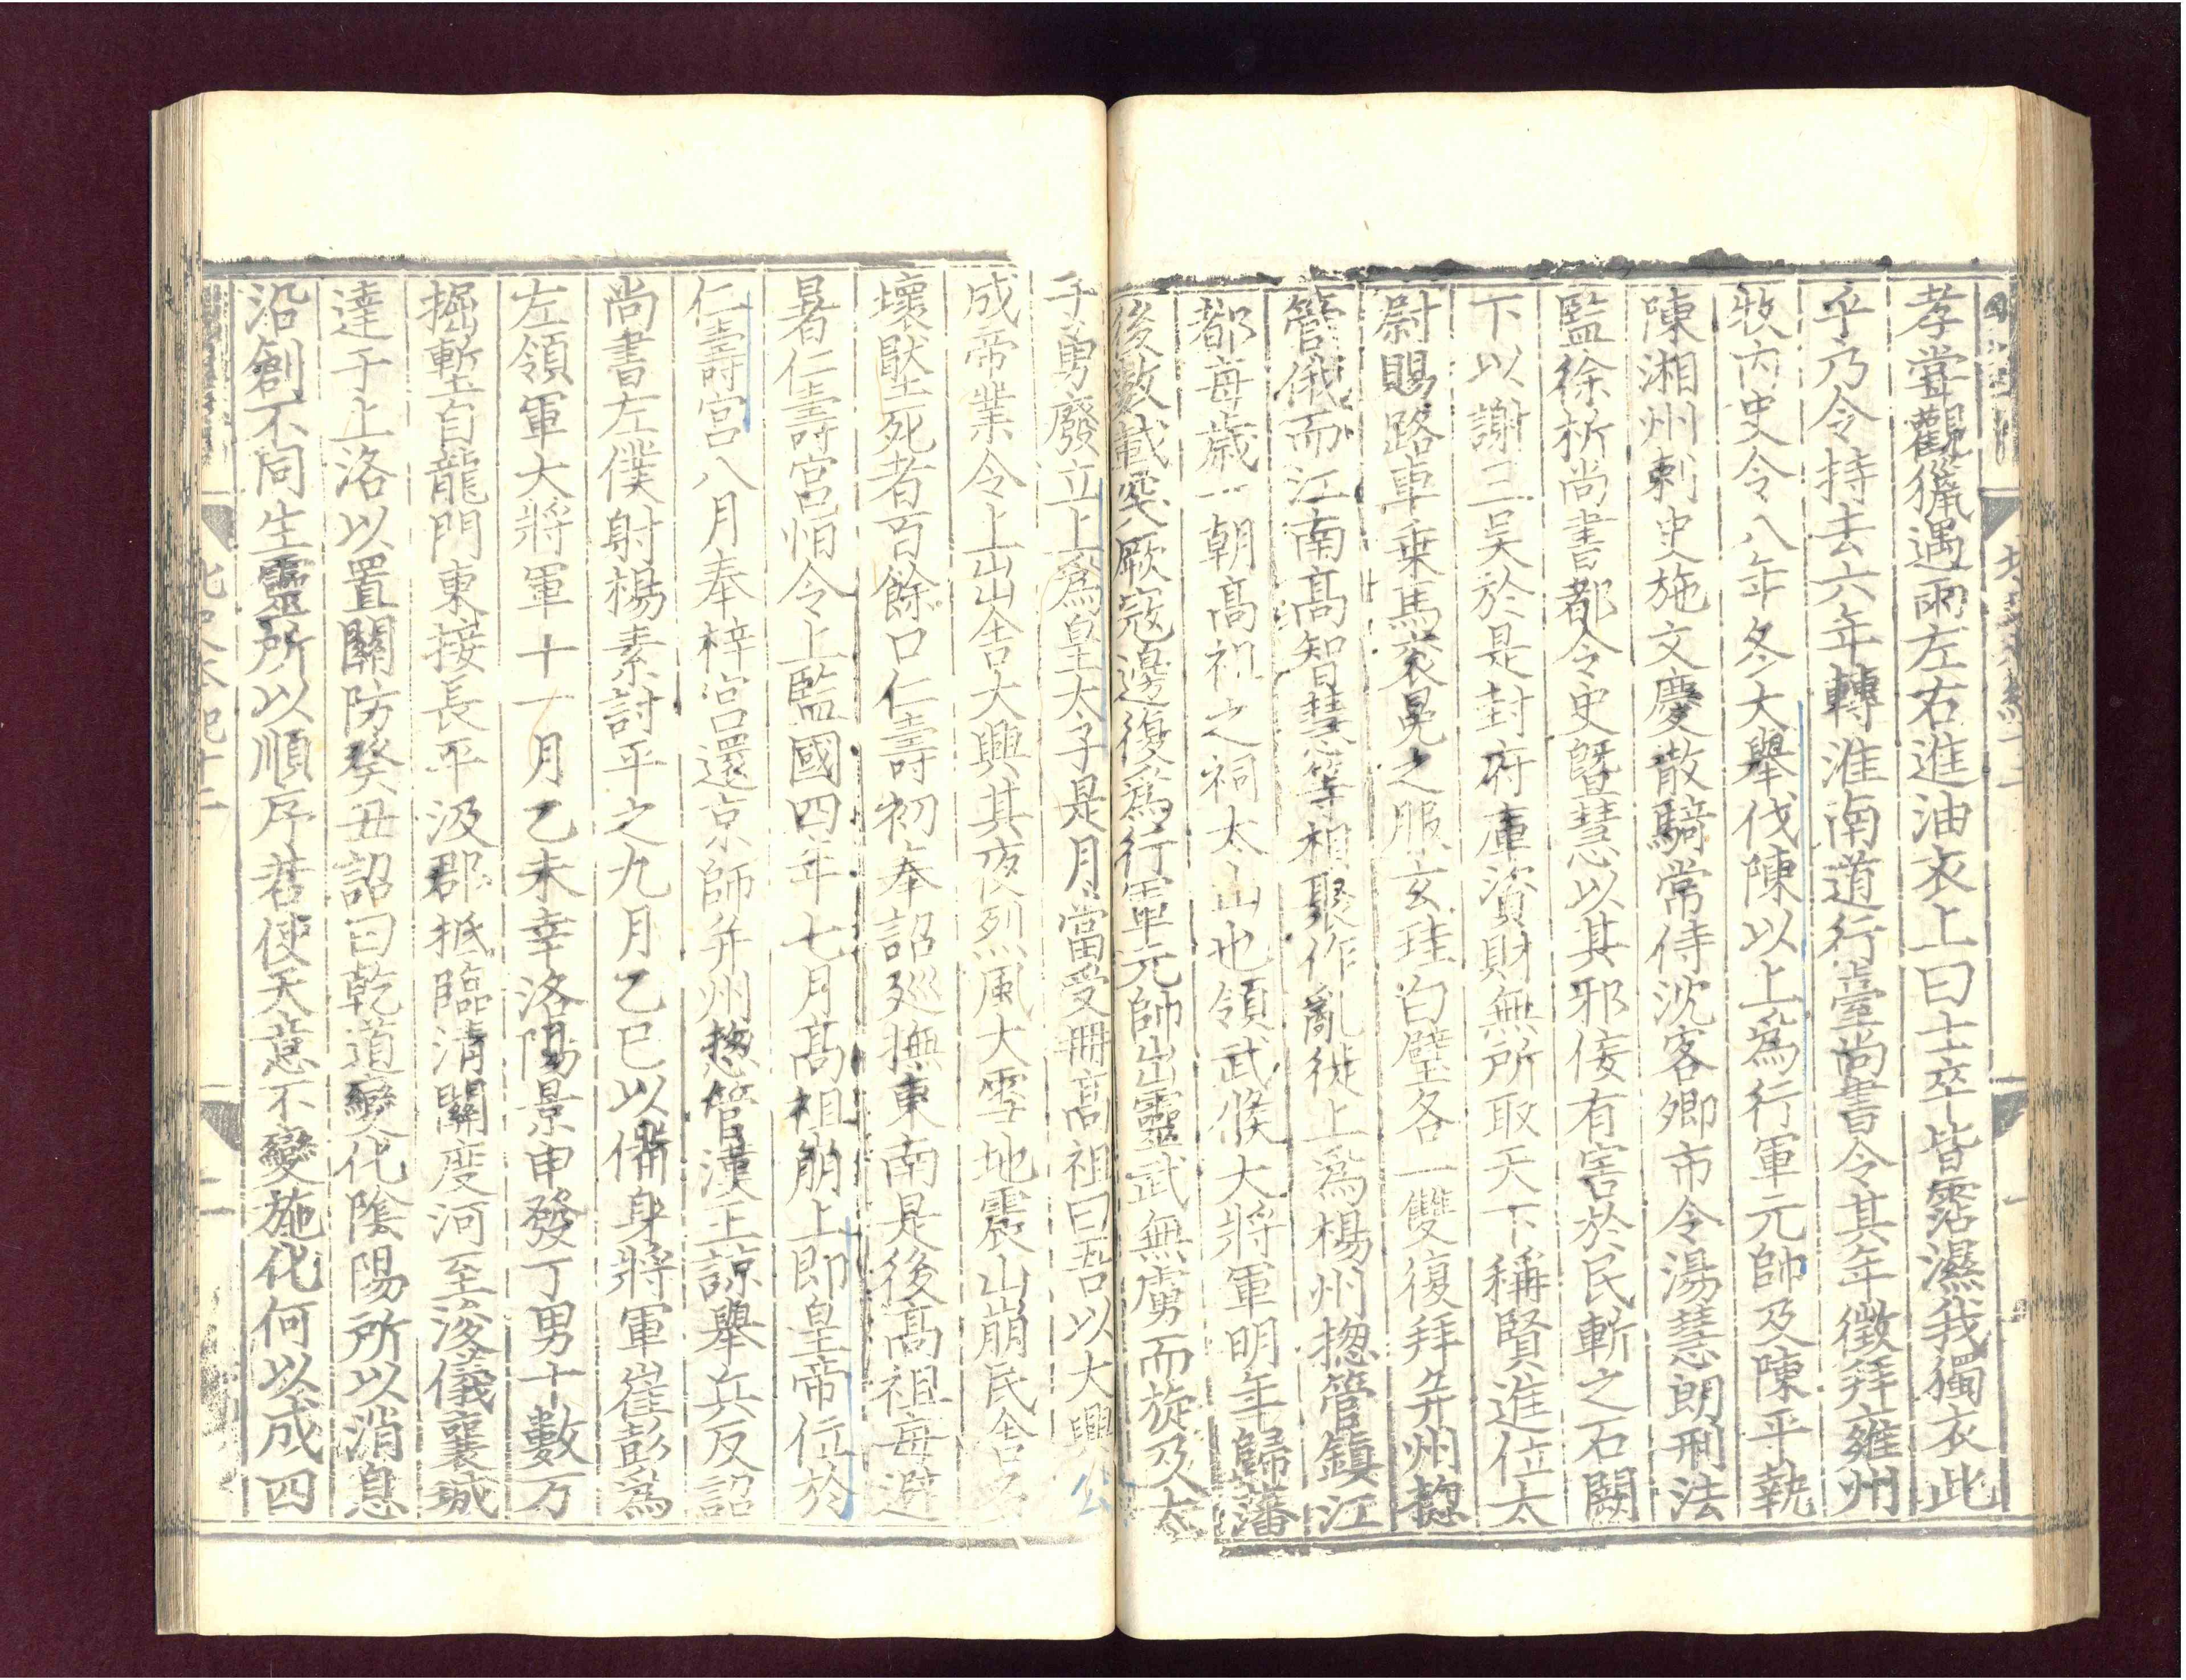 孝嘗觀獵遇雨左右進油衣上曰士卒皆霑濕我獨衣此
乎乃令持去六年轉淮南道行臺尚書令其年徵拜雍州
牧內史令八年冬大舉伐陳以上爲行軍元帥及陳平執
陳湘州刺史施文慶散騎常侍沈客卿市令湯慧朗刑法
監徐析尚書都令史曁慧以其邪佞有害於民斬之石闕
下以謝三吳於是封府庫資財無所取天下稱賢進位太
尉賜路車乗馬衮冕之服玄珪白璧各一雙復拜并州揔
管俄而江南髙智慧等相聚作亂徙上爲楊州揔管鎮江
都每歳一朝髙祖之祠太山也領武候大將軍明年歸藩
後數載突厥寇邊復爲行軍元帥出靈武無虜而旋及太
子勇廢立上爲皇太子是月當受冊髙祖曰吾以大興公
成帝業令上出舍大興其夜烈風大雪地震山崩民舍多
壞壓死者百餘口仁壽初奉詔廵撫東南是後髙祖每避
暑仁壽宮恒令上監國四年七月髙祖崩上即皇帝位於
仁壽宮八月奉梓宮還京師并州揔管漢王諒舉兵反詔
尚書左僕射楊素討平之九月乙巳以備身將軍崔彭爲
左領軍大將軍十一月乙未幸洛陽景申發丁男十數万
掘塹自龍門東接長平汲郡抵臨清關度河至浚儀襄城
達于上洛以置關防癸丑詔曰乾道變化陰陽所以消息
沿創不同生靈所以順序若使天意不變施化何以成四
北史本紀十二
二